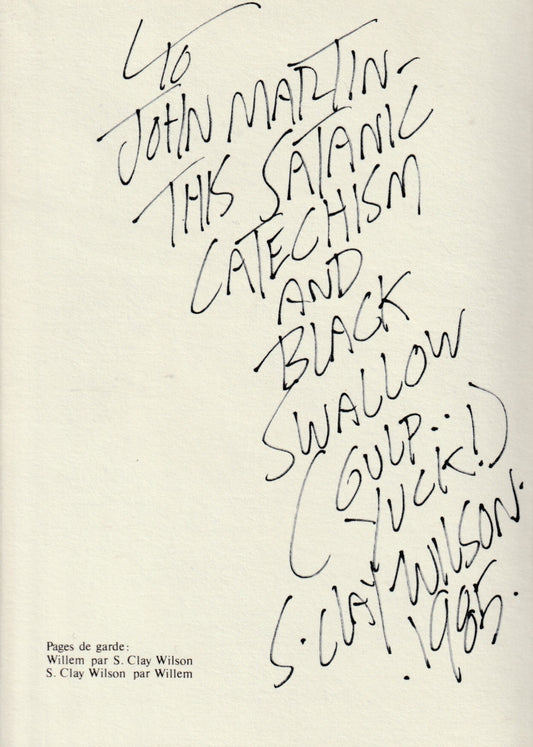 TO
JOHN MARTIN-
THIS SATANIC
CATECHISM
AND
BLACK
SWALLOW
(GULP..
YUCK!)
S. CLAY WILSON.
.1985.
Pages de garde:
Willem par S. Clay Wilson
S. Clay Wilson par Willem